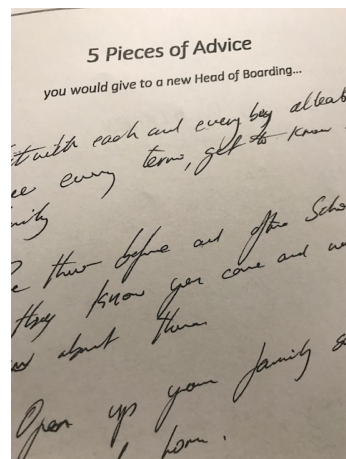 5 Pieces of Advice
you would give to a new Head of Boarding...
with each and every boy atleast
every term, get to know
before and after Scho
they know you care and
about them
Open up your family
home.